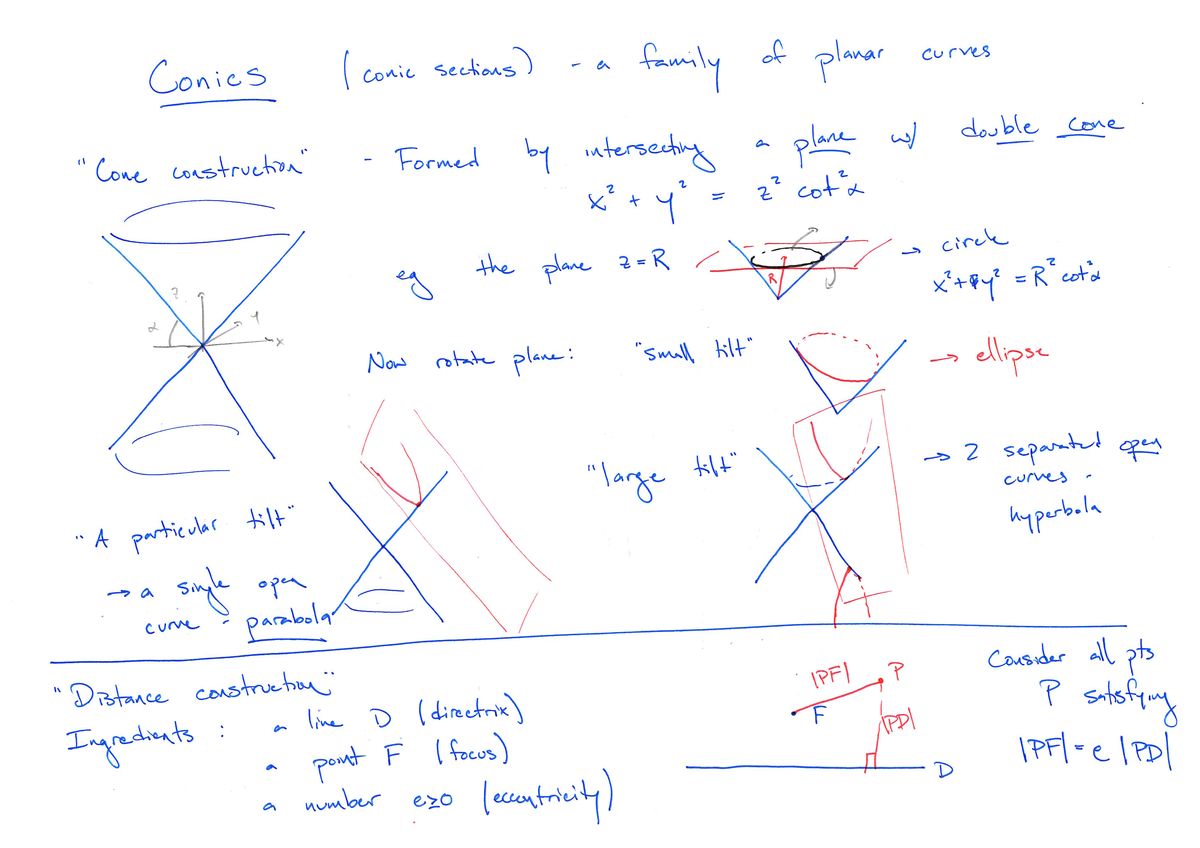 Conics (conic sections) - a family of planar curves
"Cone construction" - Formed by intersecting a plane w/ double cone
x² + y² = z² cot²α
z
y
α
x
eg the plane z = R
R
→ circle
x² + y² = R² cot²α
Now rotate plane: "small tilt"
→ ellipse
"large tilt"
→ 2 separated open
curves -
hyperbola
"A particular tilt"
→ a single open
curve - parabola
"Distance construction"
Ingredients : a line D (directrix)
a point F (focus)
a number e≥0 (eccentricity)
|PF|
P
F
|PD|
D
Consider all pts
P satisfying
|PF| = e |PD|